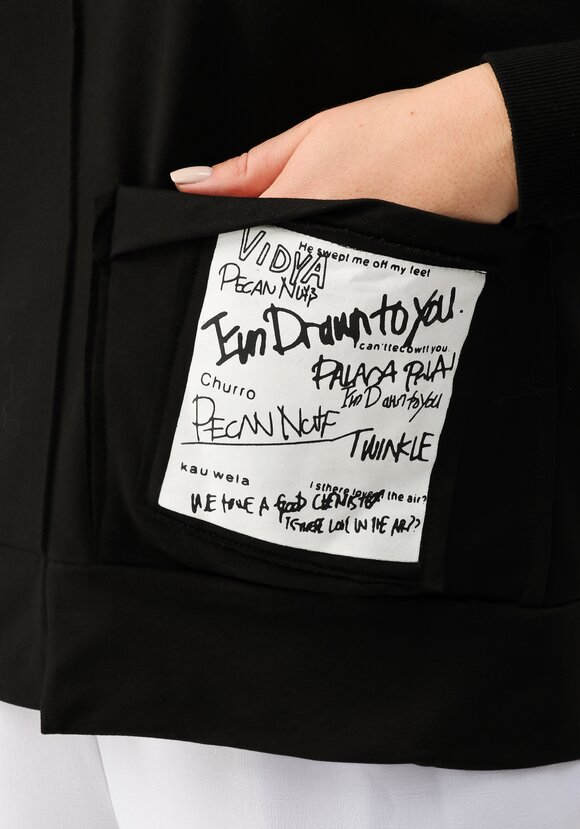 VIDYA
He swept me off my feet
PECAN NUTS
I'm Drawn to YOU.
can'ttecowil you.
PALADA PALA
I'm Dawn to you
Churro
PECAN NUTF
TWINKLE
kau wela
isthere love in the air?
WE HAVE A GOOD CHEMISTRY
IS THERE LOVE IN THE AIR??